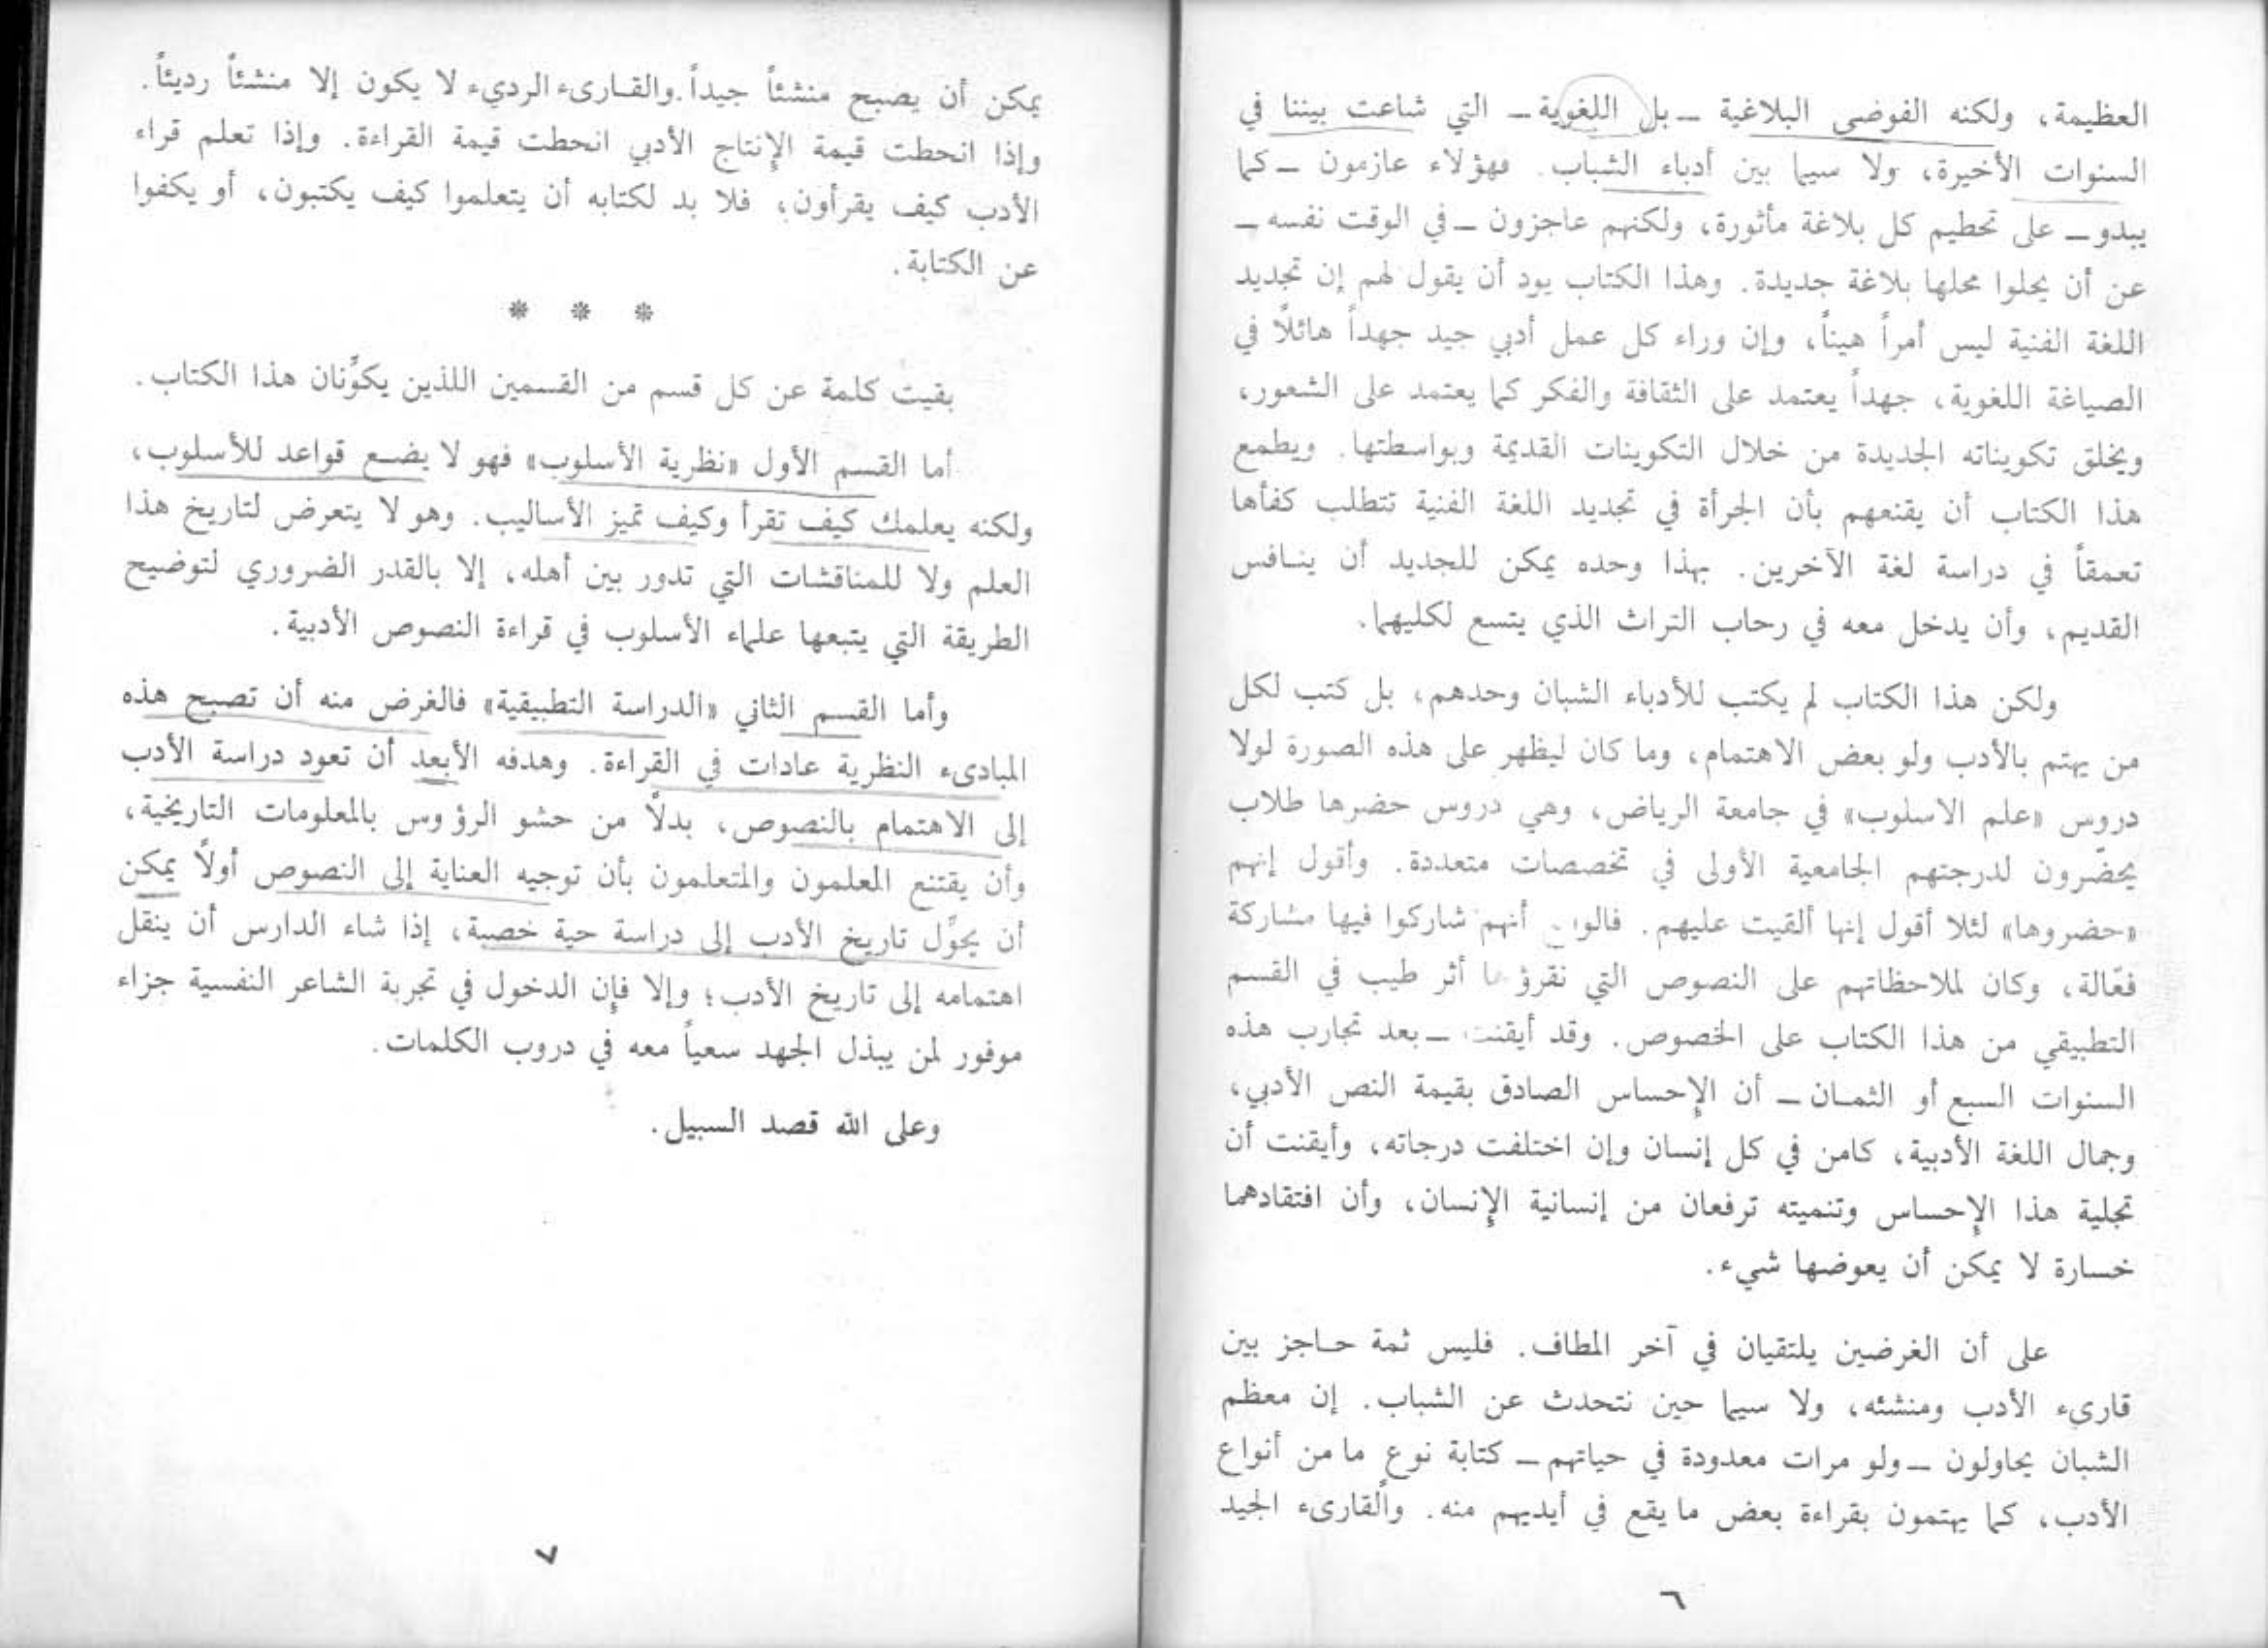 العظيمة، ولكنه الفوضى البلاغية ــ بل اللغوية ــ التي شاعت بيننا في
السنوات الأخيرة، ولا سيما بين أدباء الشباب. فهؤلاء عازمون ــ كما
يبدو ــ على تحطيم كل بلاغة مأثورة، ولكنهم عاجزون ــ في الوقت نفسه ــ
عن أن يحلوا محلها بلاغة جديدة. وهذا الكتاب يود أن يقول لهم إن تجديد
اللغة الفنية ليس أمراً هيناً، وإن وراء كل عمل أدبي جيد جهداً هائلًا في
الصياغة اللغوية، جهداً يعتمد على الثقافة والفكر كما يعتمد على الشعور،
ويخلق تكويناته الجديدة من خلال التكوينات القديمة وبواسطتها. ويطمع
هذا الكتاب أن يقنعهم بأن الجرأة في تجديد اللغة الفنية تتطلب كفأها
تعمقاً في دراسة لغة الآخرين. بهذا وحده يمكن للجديد أن ينافس
القديم، وأن يدخل معه في رحاب التراث الذي يتسع لكليهما.
ولكن هذا الكتاب لم يكتب للأدباء الشبان وحدهم، بل كتب لكل
من يهتم بالأدب ولو بعض الاهتمام، وما كان ليظهر على هذه الصورة لولا
دروس «علم الاسلوب» في جامعة الرياض، وهي دروس حضرها طلاب
يحضّرون لدرجتهم الجامعية الأولى في تخصصات متعددة. وأقول إنهم
«حضروها» لئلا أقول إنها ألقيت عليهم. أنهم شاركوا فيها مشاركة
فعّالة، وكان لملاحظاتهم على النصوص التي نقرؤها أثر طيب في القسم
التطبيقي من هذا الكتاب على الخصوص. وقد أيقنت ــ بعد تجارب هذه
السنوات السبع أو الثمان ــ أن الإحساس الصادق بقيمة النص الأدبي،
وجمال اللغة الأدبية، كامن في كل إنسان وإن اختلفت درجاته، وأيقنت أن
تجلية هذا الإحساس وتنميته ترفعان من إنسانية الإنسان، وأن افتقادهما
خسارة لا يمكن أن يعوضها شيء.
على أن الغرضين يلتقيان في آخر المطاف. فليس ثمة حاجز بين
قارىء الأدب ومنشئه، ولا سيما حين نتحدث عن الشباب. إن معظم
الشبان يحاولون ــ ولو مرات معدودة في حياتهم ــ كتابة نوع ما من أنواع
الأدب، كما يهتمون بقراءة بعض ما يقع في أيديهم منه. والقارىء الجيد
٦
يمكن أن يصبح منشئاً جيداً. والقارىء الرديء لا يكون إلا منشئاً رديئاً.
وإذا انحطت قيمة الإنتاج الأدبي انحطت قيمة القراءة. وإذا تعلم قراء
الأدب كيف يقرأون، فلا بد لكتابه أن يتعلموا كيف يكتبون، أو يكفوا
عن الكتابة.
* * *
بقيت كلمة عن كل قسم من القسمين اللذين يكوِّنان هذا الكتاب.
أما القسم الأول «نظرية الأسلوب» فهو لا يضع قواعد للأسلوب،
ولكنه يعلمك كيف تقرأ وكيف تميز الأساليب. وهو لا يتعرض لتاريخ هذا
العلم ولا للمناقشات التي تدور بين أهله، إلا بالقدر الضروري لتوضيح
الطريقة التي يتبعها علماء الأسلوب في قراءة النصوص الأدبية.
وأما القسم الثاني «الدراسة التطبيقية» فالغرض منه أن تصبح هذه
المبادىء النظرية عادات في القراءة. وهدفه الأبعد أن تعود دراسة الأدب
إلى الاهتمام بالنصوص، بدلًا من حشو الرؤوس بالمعلومات التاريخية،
وأن يقتنع المعلمون والمتعلمون بأن توجيه العناية إلى النصوص أولًا يمكن
أن يحوِّل تاريخ الأدب إلى دراسة حية خصبة، إذا شاء الدارس أن ينقل
اهتمامه إلى تاريخ الأدب؛ وإلا فإن الدخول في تجربة الشاعر النفسية جزاء
موفور لمن يبذل الجهد سعياً معه في دروب الكلمات.
وعلى الله قصد السبيل.
٧